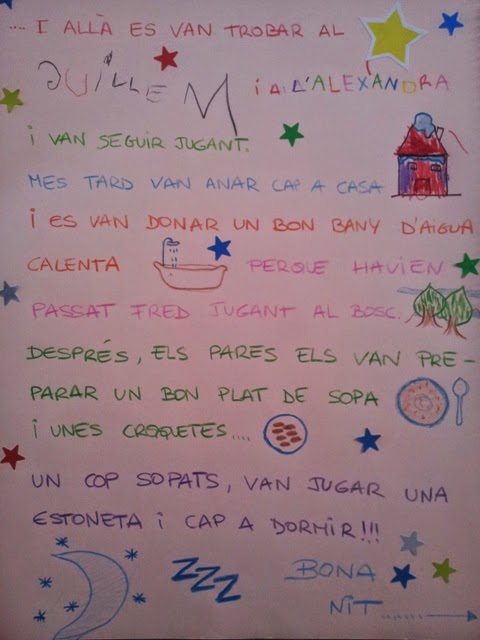 .... I ALLÀ ES VAN TROBAR AL
GUILLEM i A L'ALEXANDRA
i VAN SEGUIR JUGANT.
MES TARD VAN ANAR CAP A CASA
i ES VAN DONAR UN BON BANY D'AIGUA
CALENTA PERQUE HAVIEN
PASSAT FRED JUGANT AL BOSC.
DESPRÉS, ELS PARES ELS VAN PRE-
PARAR UN BON PLAT DE SOPA
i UNES CROQUETES....
UN COP SOPATS, VAN JUGAR UNA
ESTONETA i CAP A DORMIR!!!
ZZZ BONA
NIT